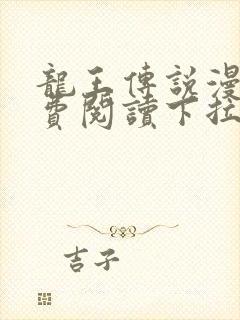 龍王傳説漫
費閱讀下拉
吉子